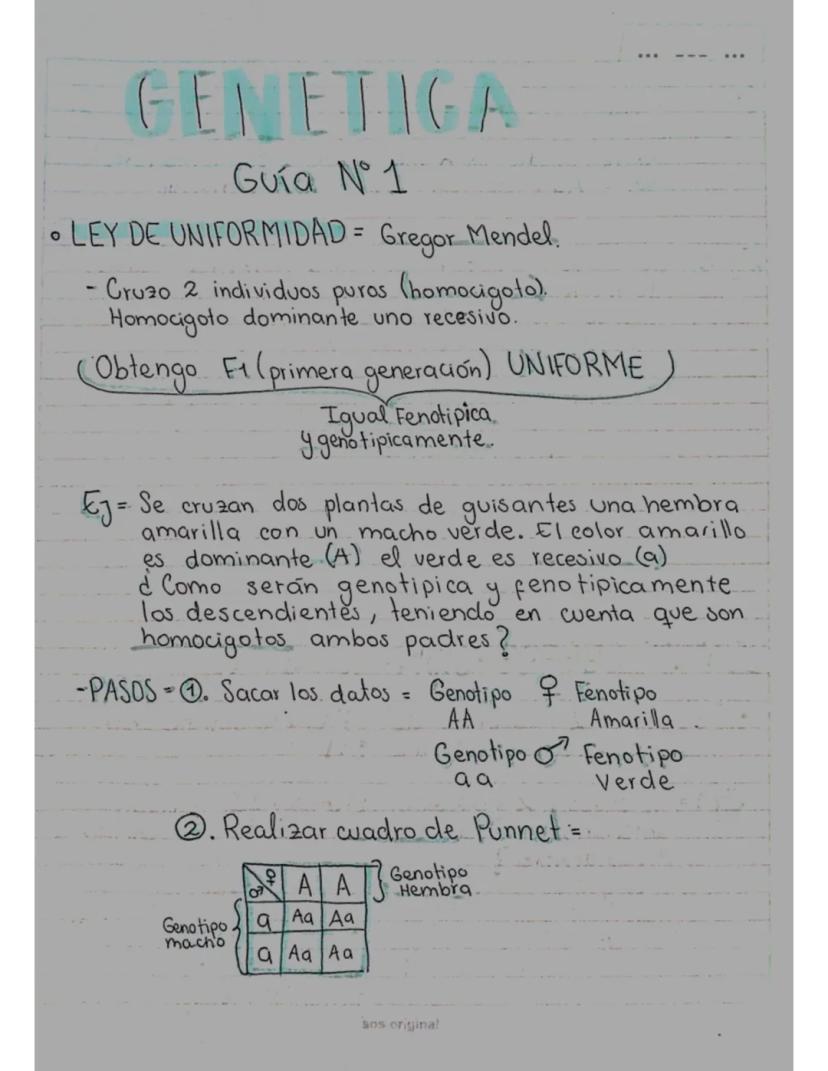 GENETICA
Guía N° 1
• LEY DE UNIFORMIDAD = Gregor Mendel.
- Cruzo 2 individuos puros (homocigoto).
Homocigoto dominante uno recesivo.
(Obtengo F1 (primera generación) UNIFORME)
Igual Fenotipica
y genotipicamente.
Ej = Se cruzan dos plantas de guisantes una hembra
amarilla con un macho verde. El color amarillo
es dominante (A) el verde es recesivo (a)
¿Como serán genotipica y fenotipicamente
los descendientes, teniendo en cuenta que son
homocigotos ambos padres?
-PASOS = ①. Sacar los datos = Genotipo ♀ Fenotipo
AA Amarilla
Genotipo ♂ Fenotipo
aa Verde
②. Realizar cuadro de Punnet =
♂ ♀ A A Genotipo Hembra
Genotipo macho a Aa Aa
a Aa Aa
sos original